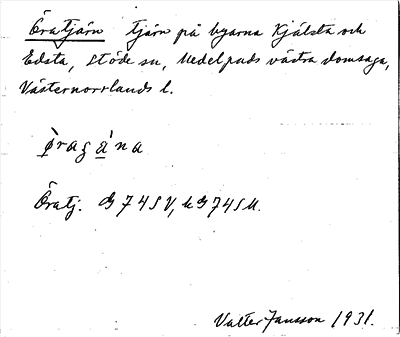 Öratjärn tjärn på byarna Kjälsta och
Edsta, Stöde sn, Medelpads västra domsaga,
Västernorrlands l.
Öratj. G 74 S V, U G 74 S U.
Valter Jansson 1931.